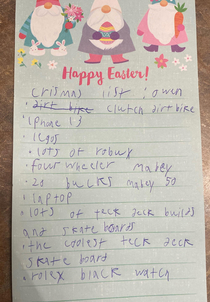 Happy Easter!
Crismas list : owen
• dirt bike clutch dirtbike
• iphone 13
• legos
• lots of robux
four wheeler mabey
• 20 bucks mabey 50
• laptop
• lots of teck deck builds
and skate boards
• the coolest teck deck
skate board
• rolex black watch